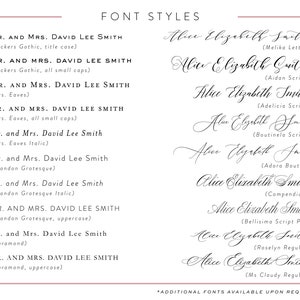 FONT STYLES
R. AND MRS. DAVID LEE SMITH
(ckers Gothic, title case)
R. AND MRS. DAVID LEE SMITH
ckers Gothic, all small caps)
r. and Mrs. David Lee Smith
rs. Eaves)
R. AND MRS. DAVID LEE SMITH
rs. Eaves, all small caps)
r. and Mrs. David Lee Smith
rs. Eaves Italic)
r. and Mrs. David Lee Smith
ondon Grotesque)
r. and Mrs. David Lee Smith
ondon Grotesque Italic)
R. AND MRS. DAVID LEE SMITH
ondon Grotesque, uppercase)
r. and Mrs. David Lee Smith
aramond)
R. AND MRS. DAVID LEE SMITH
aramond, uppercase)
Alice Elizabeth Smit
(Melika Lett
Alice Elizabeth Smit
(Aidan Scri
Alice Elizabeth Smi
(Adelicia Scri
Alice Elizabeth S
(Boutinela Scri
Alice Elizabeth Smi
(Adora Bout
Alice Elizabeth Smi
(Compendiu
Alice Elizabeth Smi
(Bellisimo Script P
Alice Elizabeth Smi
(Roselyn Regul
Alice Elizabeth Smi
(Ms Cloudy Regul
*ADDITIONAL FONTS AVAILABLE UPON REQ